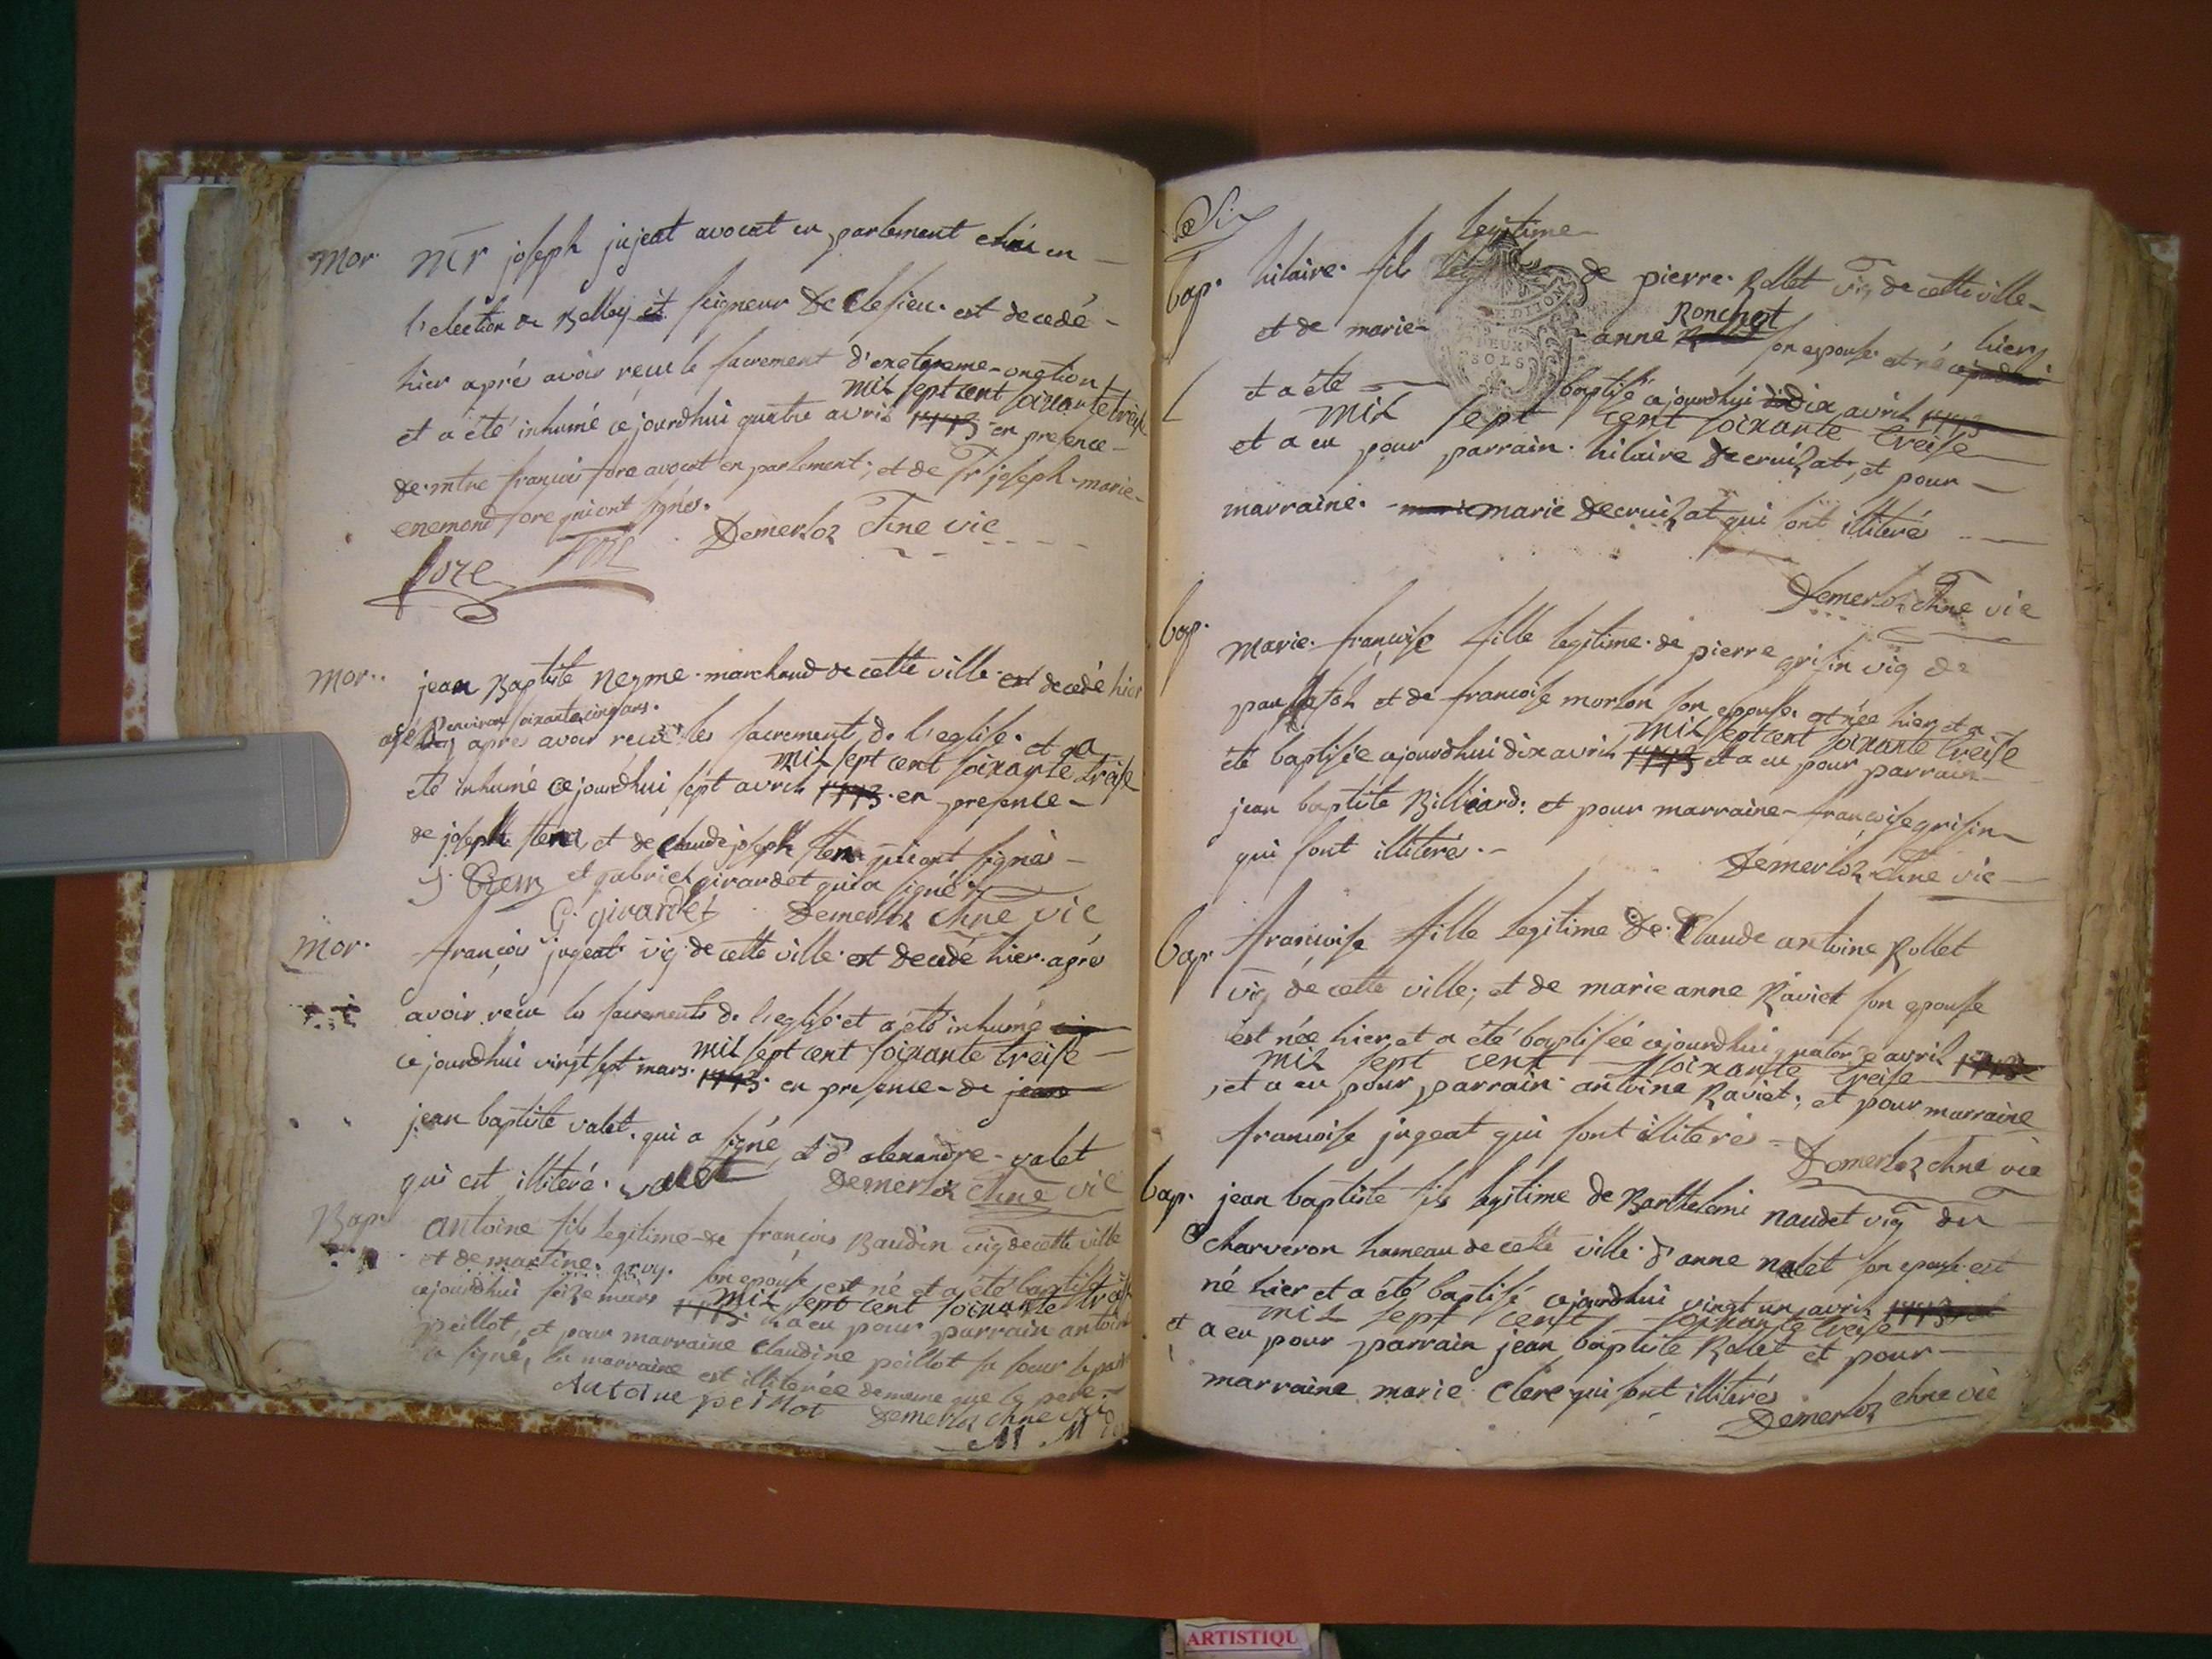 mor. mr joseph jujeat avocat en parlement elu en
l'election de Belley et seigneur de est decedé
hier aprés avoir reçu le sacrement d'exetreme-onction
mil sept cent soixante treise
et a été inhumé ce jourdhui quatre avril 1773 en presence
de mtre françois fore avocat en parlement, et de Sr joseph marie
enemond fore qui ont signés.
fore fore Demerloz chne vic
mor. jean Baptiste neyme marchand de cette ville est decedé hier
agé d'environ soixante cinq ans.
aprés avoir reçu les sacrement de l'eglise. et a
mil sept cent soixante treise
eté inhumé ce jourdhui sept avril 1773 en presence
de joseph et de claude joseph qui ont signés
et gabriel girardet qui a signé
G. girardet Demerloz chne vic
mor. françois jugeat vig de cette ville est decedé hier aprés
avoir reçu les sacrements de l'eglise et a eté inhumé
mil sept cent soixante treise
ce jourdhui vingt sept mars 1773 en presence de jean
jean baptiste valet qui a signé et d'alexandre valet
qui est illiteré. valet Demerloz chne vic
Bap. antoine fils legitime de françois Baudin vig de cette ville
et de martine son epouse est né et a été baptisé
mil sept cent soixante treise
cejourdhui seize mars 1773 et a eu pour parrain antoine
peillot, et pour marraine claudine peillot sa soeur le parrain
a signé, la marraine est illiterée demême que le pere.
Antoine peillot Demerloz chne vic
Six
legitime
bap. hilaire fils de pierre Rollet vig de cette ville
Ronchet hier
et de marie anne son epouse est né cejourdhui
et a été baptisé cejourdhui dix avril 1773
mil sept cent soixante treise
et a eu pour parrain hilaire decruizat, et pour
marraine marie marie decruizat qui sont illiterés
Demerloz chne vic
bap. marie françoise fille legitime de pierre grisin vig de
et de françoise morton son epouse est née hier et a
mil sept cent soixante treise
été baptisée cejourdhui dix avril 1773 et a eu pour parrain
jean baptiste Billiard. et pour marraine françoise grisin
qui sont illiterés. Demerloz chne vic
bap. françoise fille legitime de Claude antoine Rollet
vig de cette ville, et de marie anne Raviet son epouse
est née hier et a été baptisée cejourdhui quatorze avril 1773
mil sept cent soixante treise
, et a eu pour parrain antoine Raviet, et pour marraine
françoise jugeat qui sont illiterés
Demerloz chne vic
bap. jean baptiste fils legitime de Barthelemi naudet vig du
charveron hameau de cette ville d'anne nalet son epouse est
né hier et a été baptisé cejourdhui vingt un avril 1773
mil sept cent soixante treise
et a eu pour parrain jean baptiste Rollet et pour
marraine marie clerc qui sont illiterés
Demerloz chne vic
DEUX
SOLS
ARTISTIQU